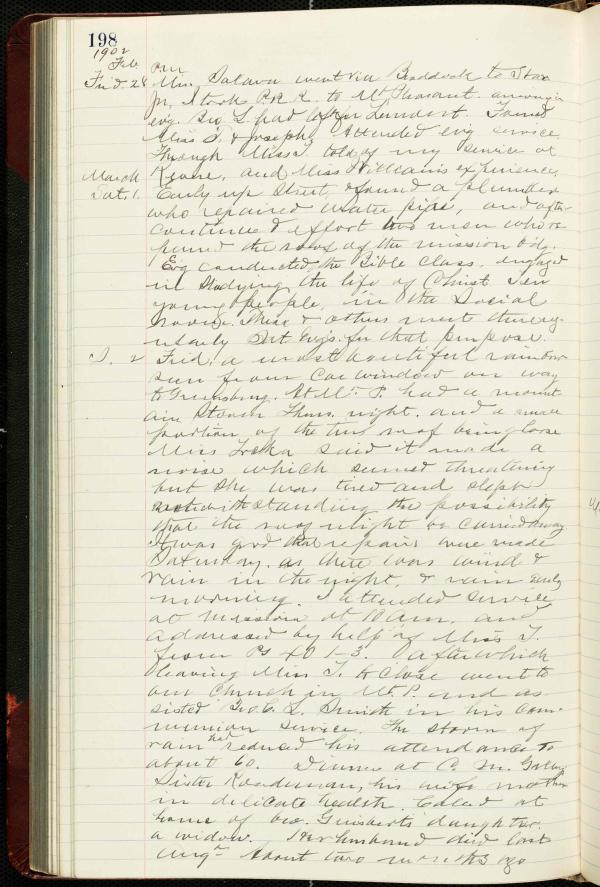 198
1902
Feb. P.M.
Frid. 28 Miss Dalava went via Braddock to Star
Jn, I took P.R.R. to Mt Pleasant. arriving in
evg. Bro. S. had left for Lundort. Joined
Miss T. & Joseph. Attended evg service
Through Miss T. told of my service at
March Keane, and Miss Williams experience,
Sat. 1. Early up street, & found a plumber
who repaired water pipe, and after
continued effort two men who re-
paired the roof of the mission bdg.
Evg conducted the Bible class, engaged
in studying the life of Christ. Ten
young people, in the Social
room. These & others meet there reg-
ularly Sat. Evg's. for that purpose.
S. 2 Frid, a most beautiful rainbow
seen from car window on way
to Greensburg. At Mt. P. had a mount-
ain storm Thurs. night. and a small
portion of the tin roof being loose
Miss said it made a
noise which seemed threatening
but she was tired and slept
notwithstanding the possibility
that the roof might be carried away
It was good that repairs were made
Saturday, as there was wind &
rain in the night, & rain early
morning. I attended service
at mission at 10 a.m. and
addressed by help of Miss T.
from Ps 40 1-3. After which
leaving Miss T. to close went to
our church in Mt. P. and as-
sisted Bro. C. L. Smith in his com-
munion service. The storm of
rain had reduced his attendance to
about 60. Dinner at C. M.
Sister his wife's mother
in delicate health. Called at
home of bro. daughter.
a widow. Her husband died last
Aug. About two months ago